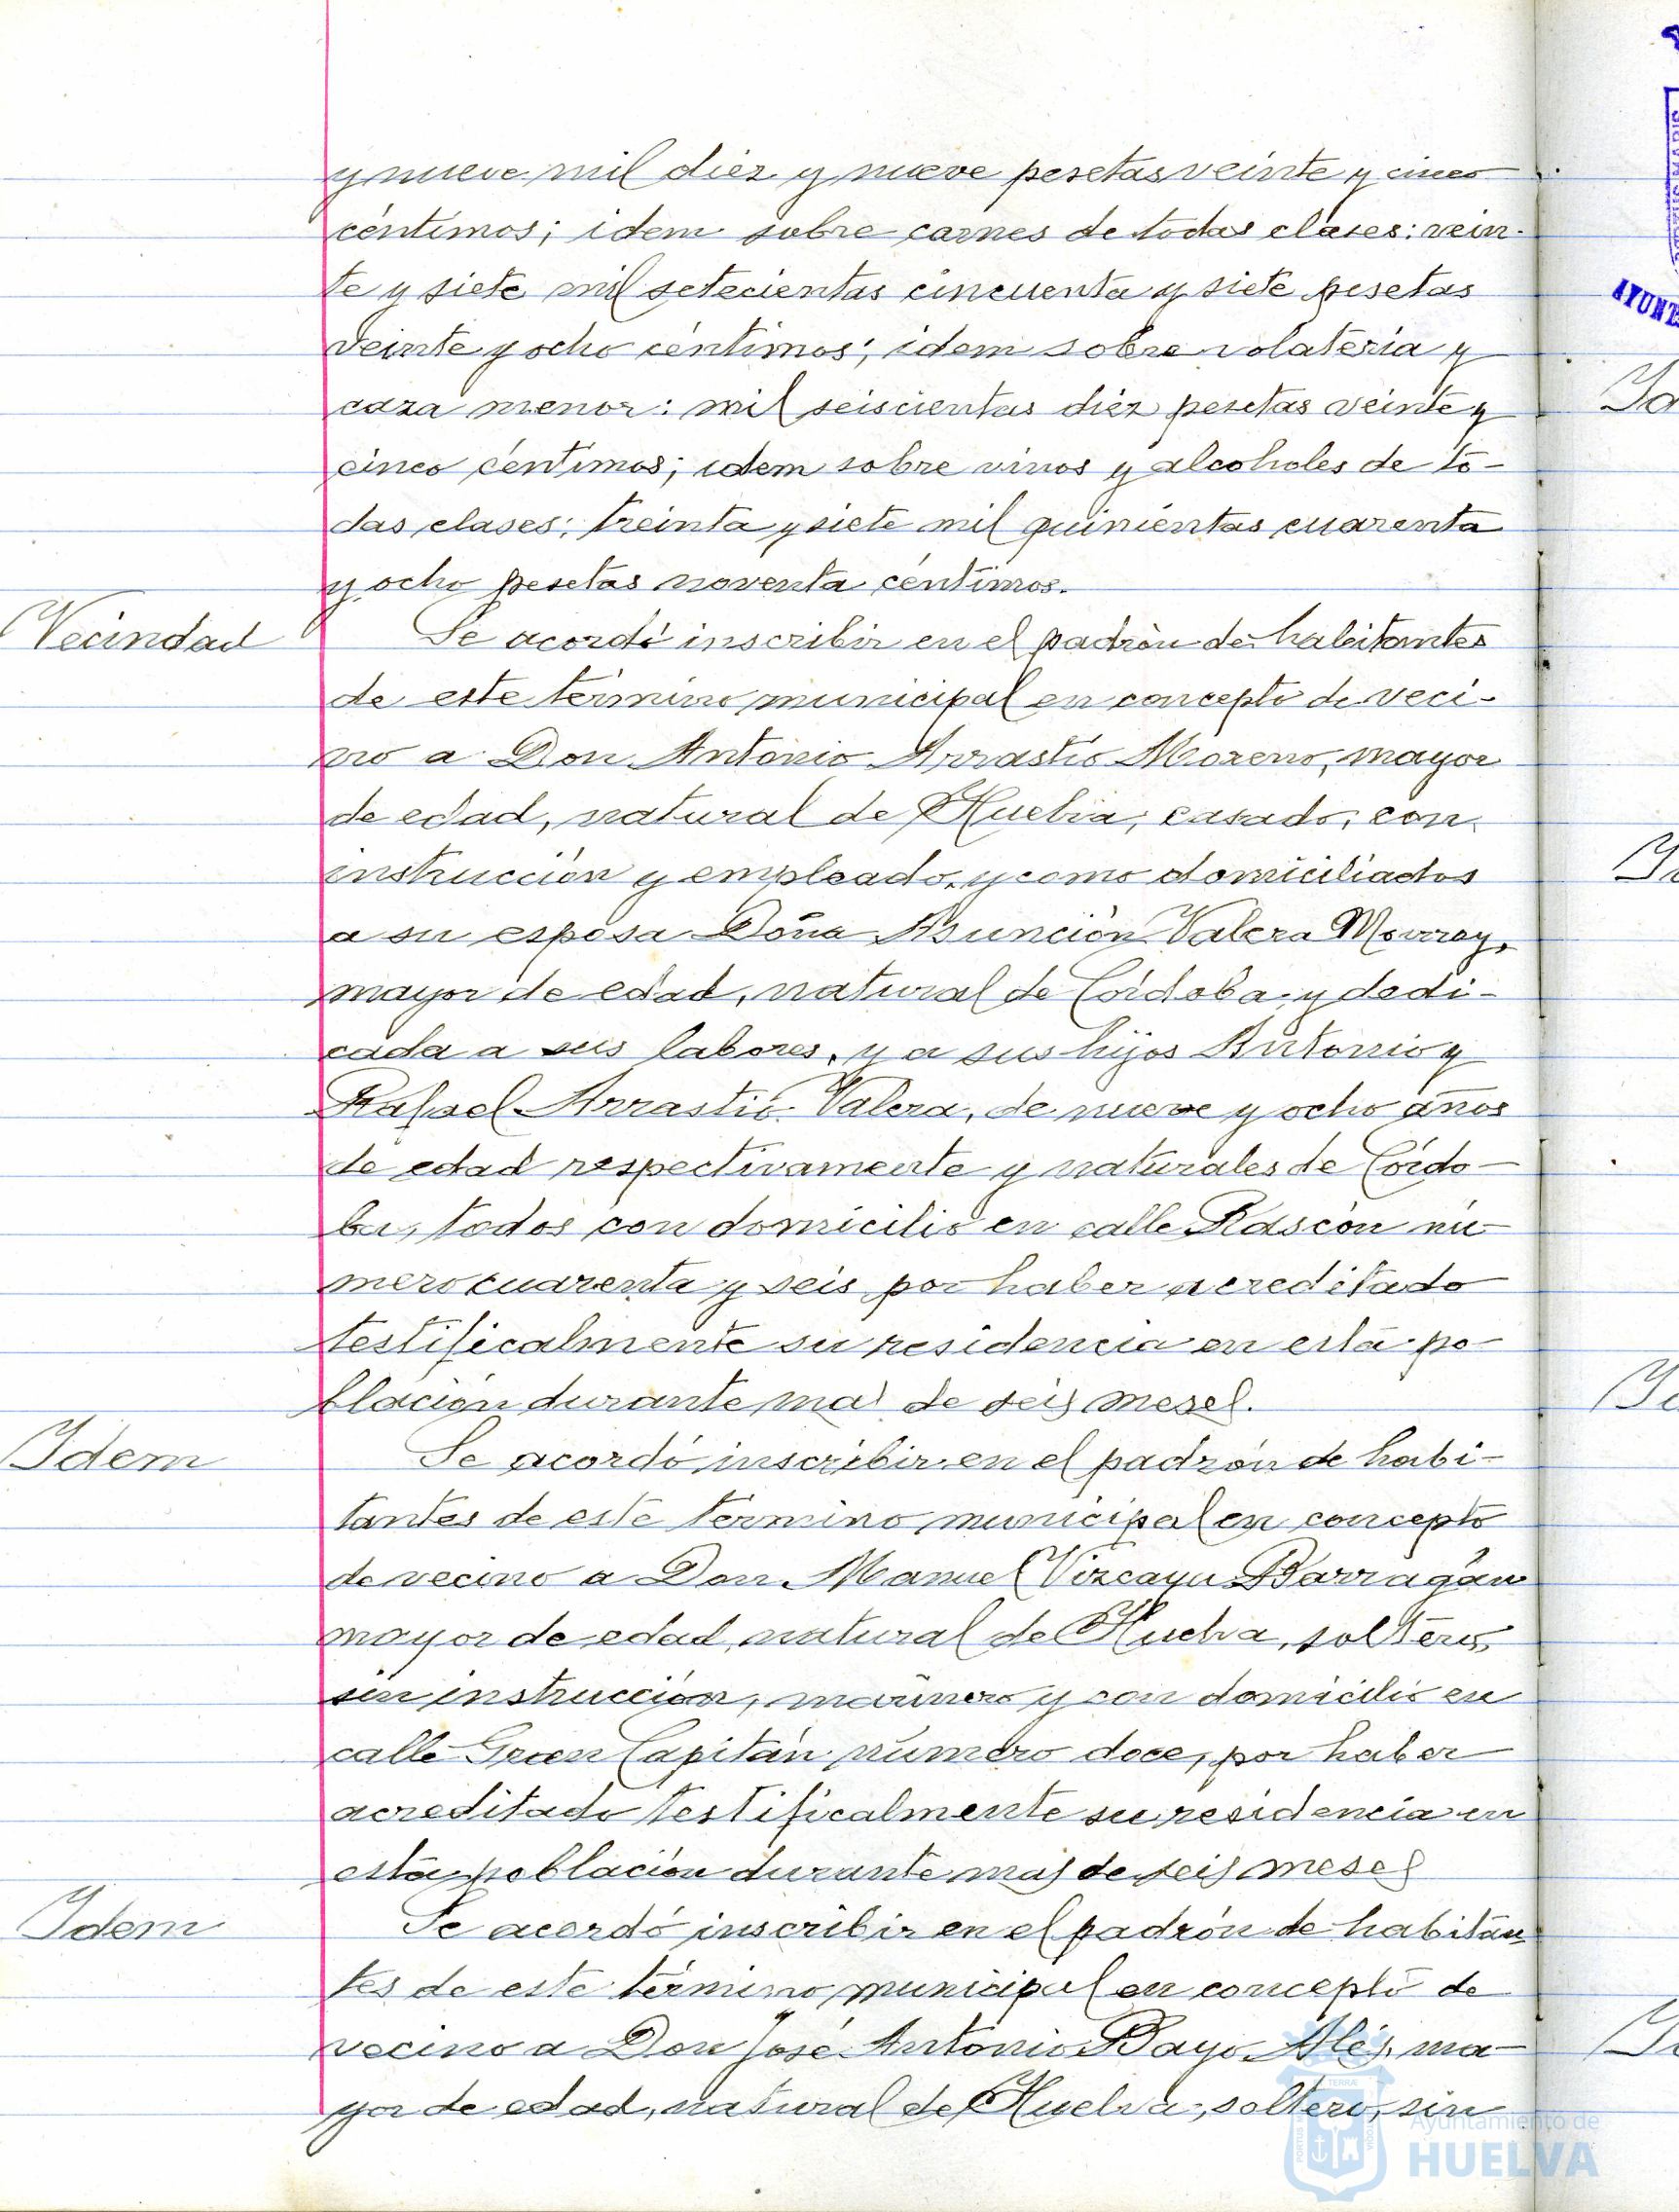 y nueve mil diez y nueve pesetas veinte y cinco
céntimos; idem sobre carnes de todas clases: vein-
te y siete mil setecientas cincuenta y siete pesetas
veinte y ocho céntimos; idem sobre volatería y
caza menor: mil seiscientas diez pesetas veinte y
cinco céntimos; idem sobre vinos y alcoholes de to-
das clases; treinta y siete mil quinientas cuarenta
y ocho pesetas noventa céntimos.
Vecindad
Se acordó inscribir en el padrón de habitantes
de este término municipal en concepto de veci-
no a Don Antonio Arrastio Moreno, mayor
de edad, natural de Huelva, casado, con
instrucción y empleado, y como domiciliados
a su esposa Doña Asunción Valera
mayor de edad, natural de Córdoba y dedi-
cada a sus labores, y a sus hijos Antonio y
Rafael Arrastio Valera, de nueve y ocho años
de edad respectivamente y naturales de Córdo-
ba, todos con domicilio en calle Rascón nú-
mero cuarenta y seis por haber acreditado
testificalmente su residencia en esta po-
blación durante mas de seis meses.
Idem
Se acordó inscribir en el padrón de habi-
tantes de este término municipal en concepto
de vecino a Don Manuel Vizcaya Barragán
mayor de edad, natural de Huelva, soltero,
sin instrucción, marinero y con domicilio en
calle Gran Capitán número doce, por haber
acreditado testificalmente su residencia en
esta población durante mas de seis meses
Idem
Se acordó inscribir en el padrón de habitan
tes de este término municipal en concepto de
vecino a Don José Antonio Bayo Alés, ma-
yor de edad, natural de Huelva, soltero, sin
AYUNT
Ayuntamiento de
HUELVA